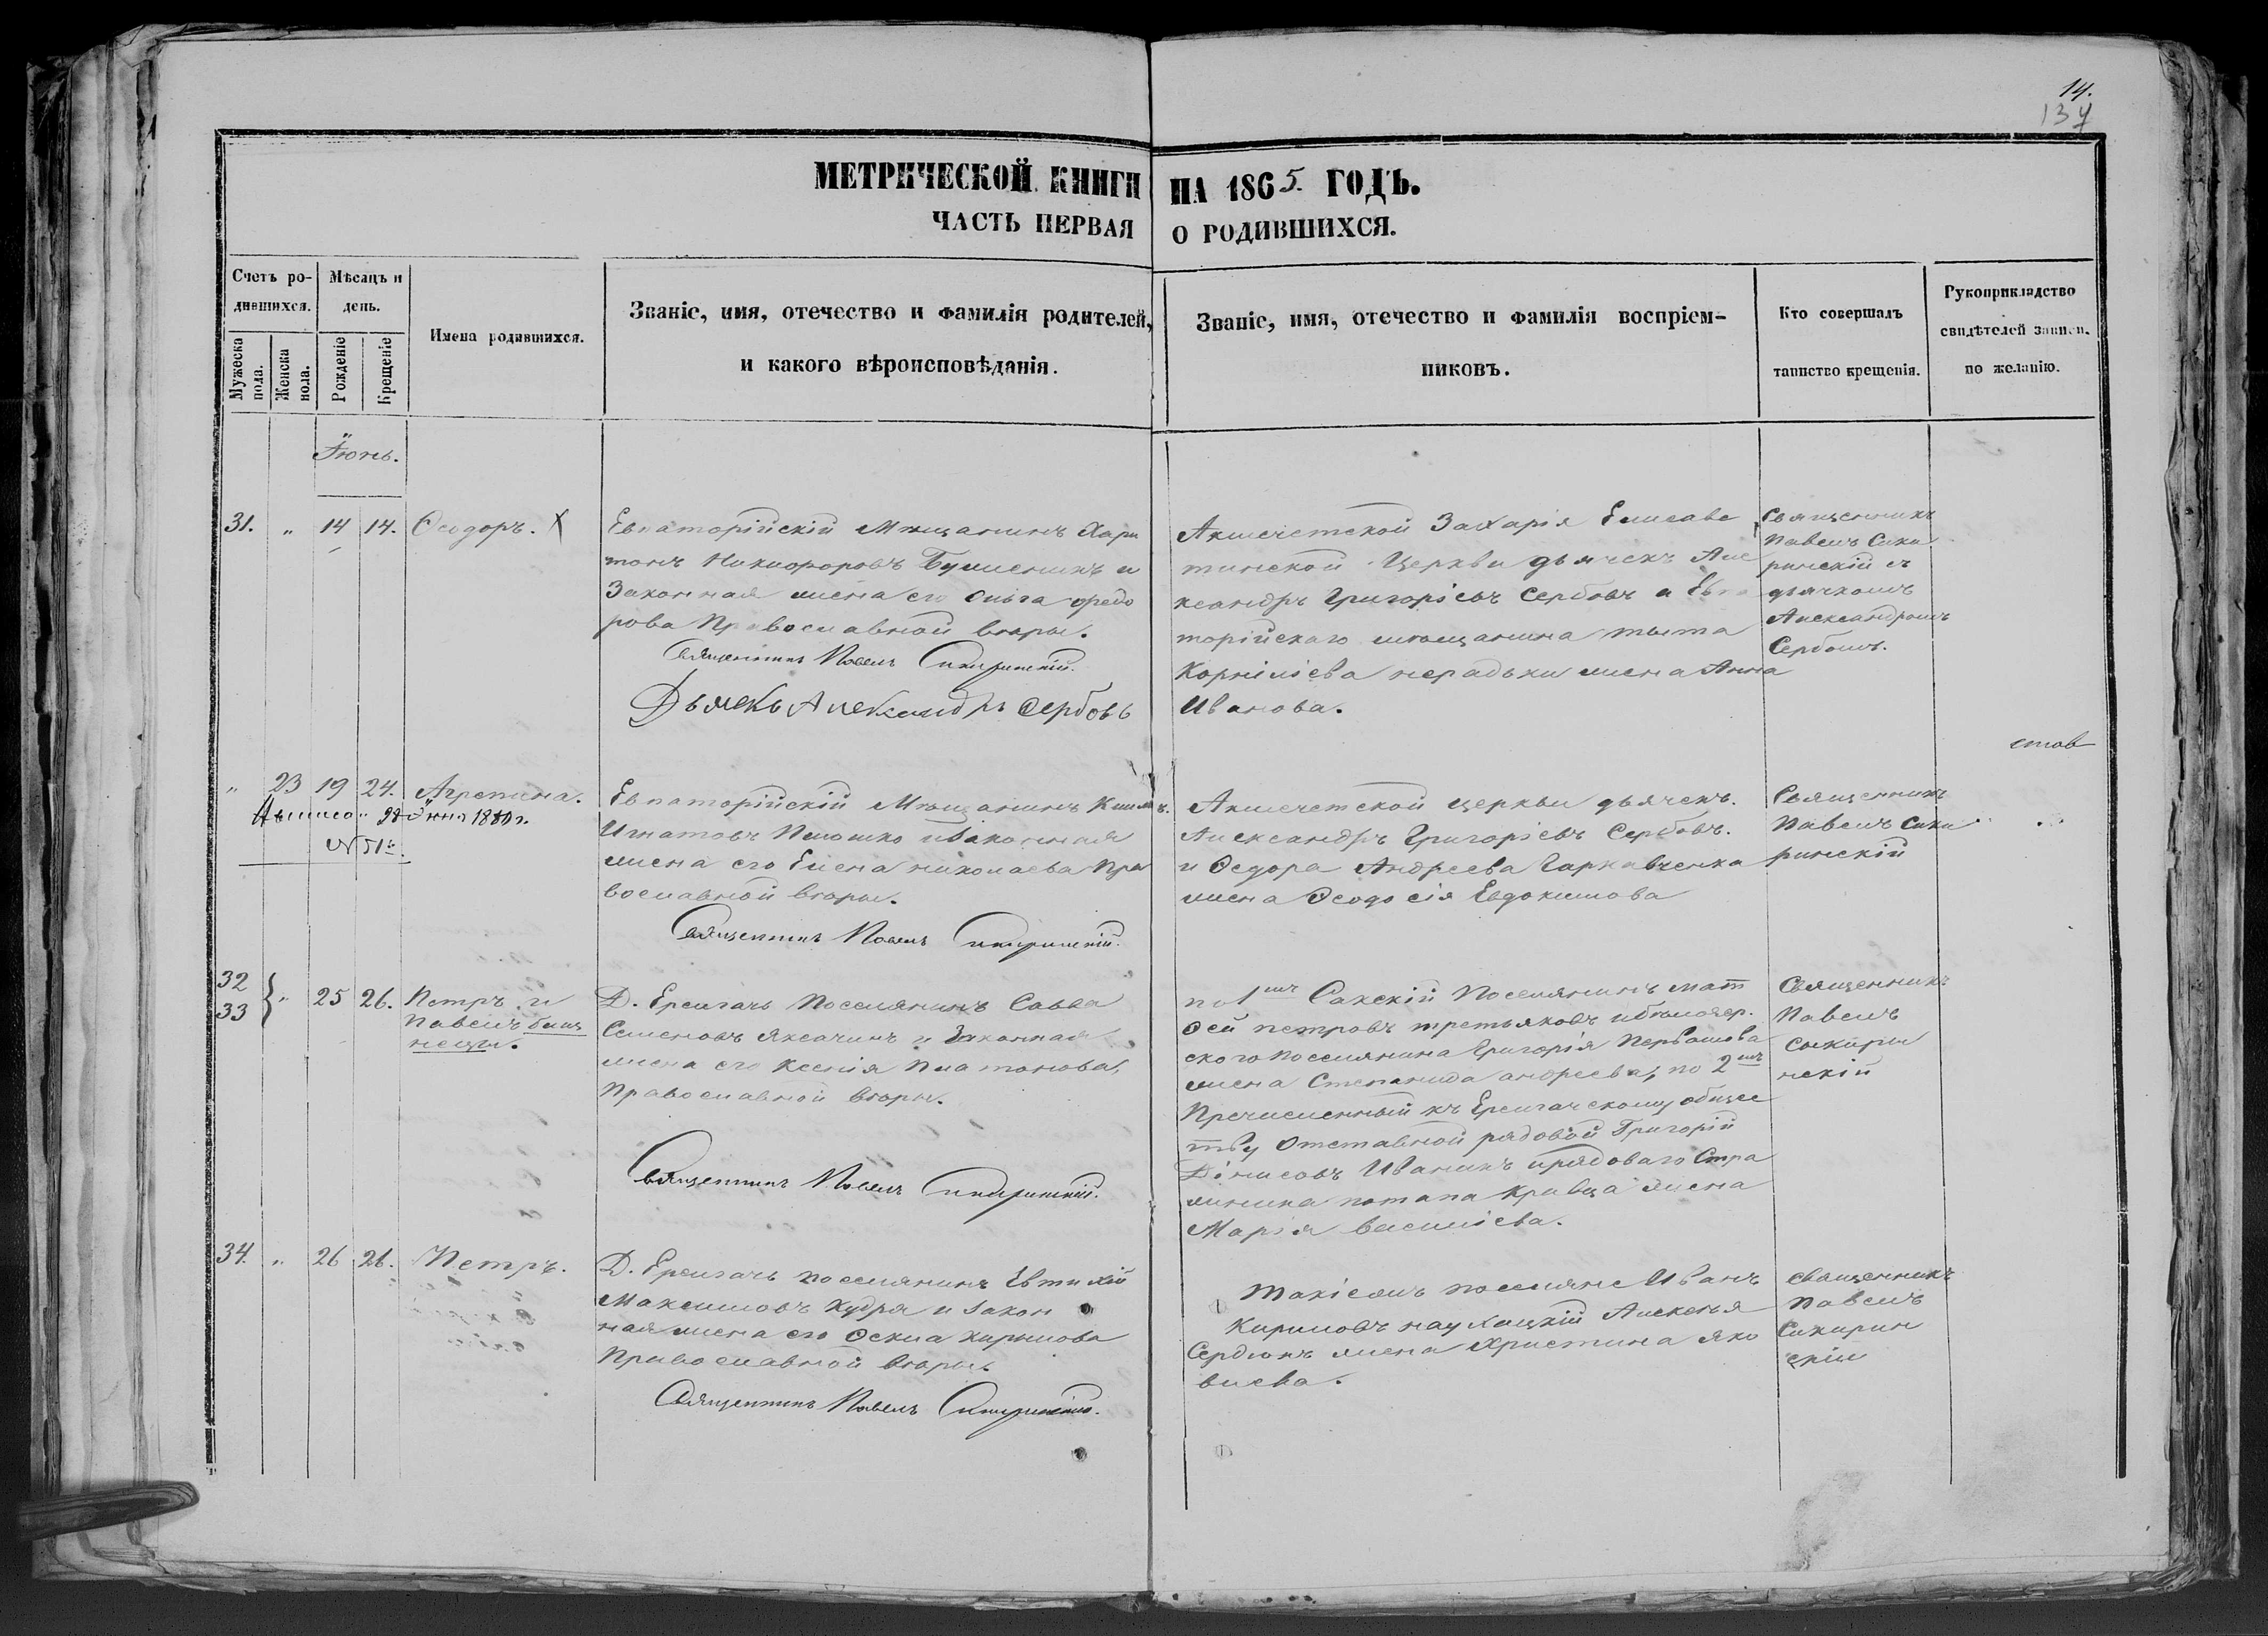 14.
137
МЕТРИЧЕСКОЙ КНИГИ НА 1865. ГОДЪ.
ЧАСТЬ ПЕРВАЯ О РОДИВШИХСЯ.
Счетъ ро-
дившихся.
Мужеска
пола.
Женска
пола.
Мѣсяцъ и
день.
Рожденіе
Крещеніе
Имена родившихся.
Званіе, имя, отечество и фамилія родителей,
и какого вѣроисповѣданія.
Званіе, имя, отечество и фамилія воспріем-
никовъ.
Кто совершалъ
таинство крещенія.
Рукоприкладство
свидѣтелей записи.
по желанію.
Іюнь.
31. " 14 14. Ѳеодоръ. X
Евпаторійскій Мѣщанинъ Хари
тонъ Никифоровъ и
Законная жена его Ольга Федо
рова Православной вѣры.
Священникъ Павелъ Сикиринскій.
Дьячекъ Александръ Сербовъ
Акмечетской Захарія Елисаве
тинской Церкви дьячекъ Але
ксандръ Григорієвъ Сербовъ и Евпа
торійскаго мѣщанина Тыта
Корнілієва жена Анна
Иванова.
Священникъ
Павелъ Сики
ринскій съ
дьячкомъ
Александромъ
Сербомъ.
" 23 19 24. Агрепина.
1880 г.
Евпаторійскій Мѣщанинъ
Игнатовъ и Законная
жена его Елена николаева Пра
вославной вѣры.
Священникъ Павелъ Сикиринскій.
Акмечетской церкви дьячекъ.
Александръ Григорієвъ Сербовъ.
и Ѳедора Андреева Гаркавченка
жена Ѳеодосія Евдокимова
Священникъ
Павелъ Сики
ринскій
32
33 } " 25 26. Петръ и
Павелъ близ
нецы.
Д. Ерещачь Поселянинъ Савва
Семеновъ и Законная
жена его Ксенія Платонова,
Православной вѣры.
Священникъ Павелъ Сикиринскій.
по 1мъ Сакскій Поселянинъ Мат
ѳей петровъ третьяковъ
ского поселянина Григорія
жена Степанида андреева, по 2мъ
Пречисленный къ общес
тву Отставной рядовой Григорій
Дінисовъ Иваникъ и рядоваго Стра
жника потапа Кравца жена
Марія василієва.
Священникъ
Павелъ
Сикири
нскій
34. " 26 26. Петръ.
Д. Ерещачь поселянинъ Евтихій
Максимовъ Кудря и закон
ная жена его
Православной вѣры.
Священникъ Павелъ Сикиринскій.
Такіежъ поселяне Иванъ
Кириловъ Алексѣя
Сердюкъ жена Христина Яко
влева.
Священникъ
Павелъ
Сикирин
скій